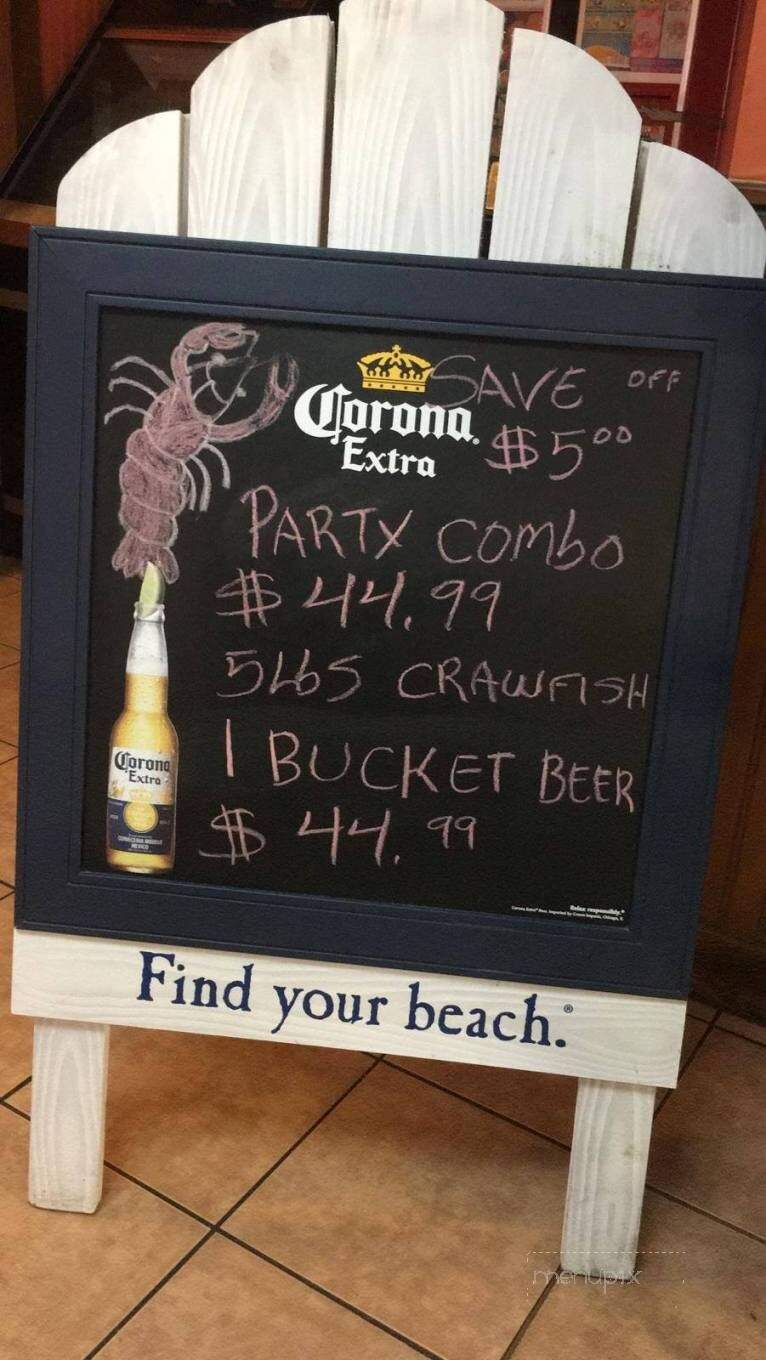 SAVE OFF
Corona.
Extra
$5⁰⁰
PARTY COMBO
$44.99
5LbS CRAWFISH
1 BUCKET BEER
$44.99
Corona
Extra
Relax responsibly.®
Find your beach.®
menupix